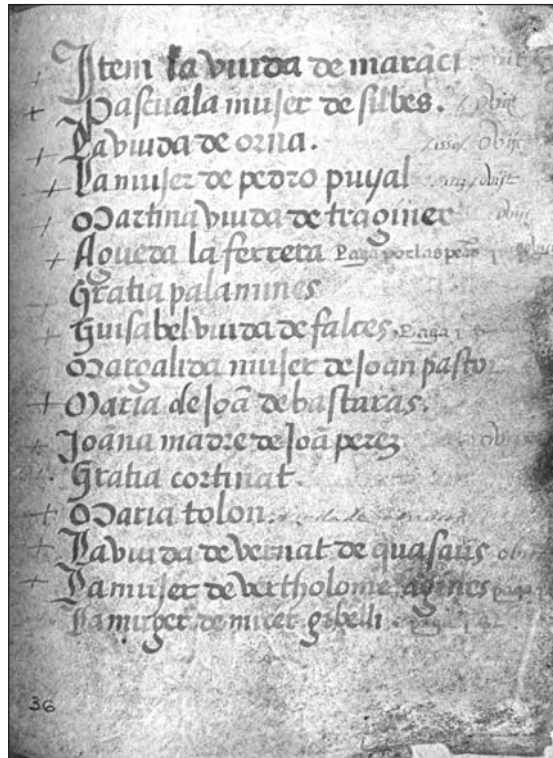 + Item la viuda de maraci
+ Pascuala mujer de silbes. obijt
+ La viuda de orna. 1550 / obijt
+ La mujer de pedro puyal obijt
+ Martina viuda de traginer obijt
+ Agueda la ferrera Paga por las
+ Gratia palamines
+ Guisabel viuda de falces. Paga
Margalida mujer de Joan pastor
+ Maria de Joã de bastaras.
+ Joãna madre de Joã perez obijt
+ Gratia cortinat.
+ Maria tolon. viuda de
+ La viuda de vernat de quasaus obijt
+ La mujer de bertholome agines paga
La muger de micer gibelli.
36